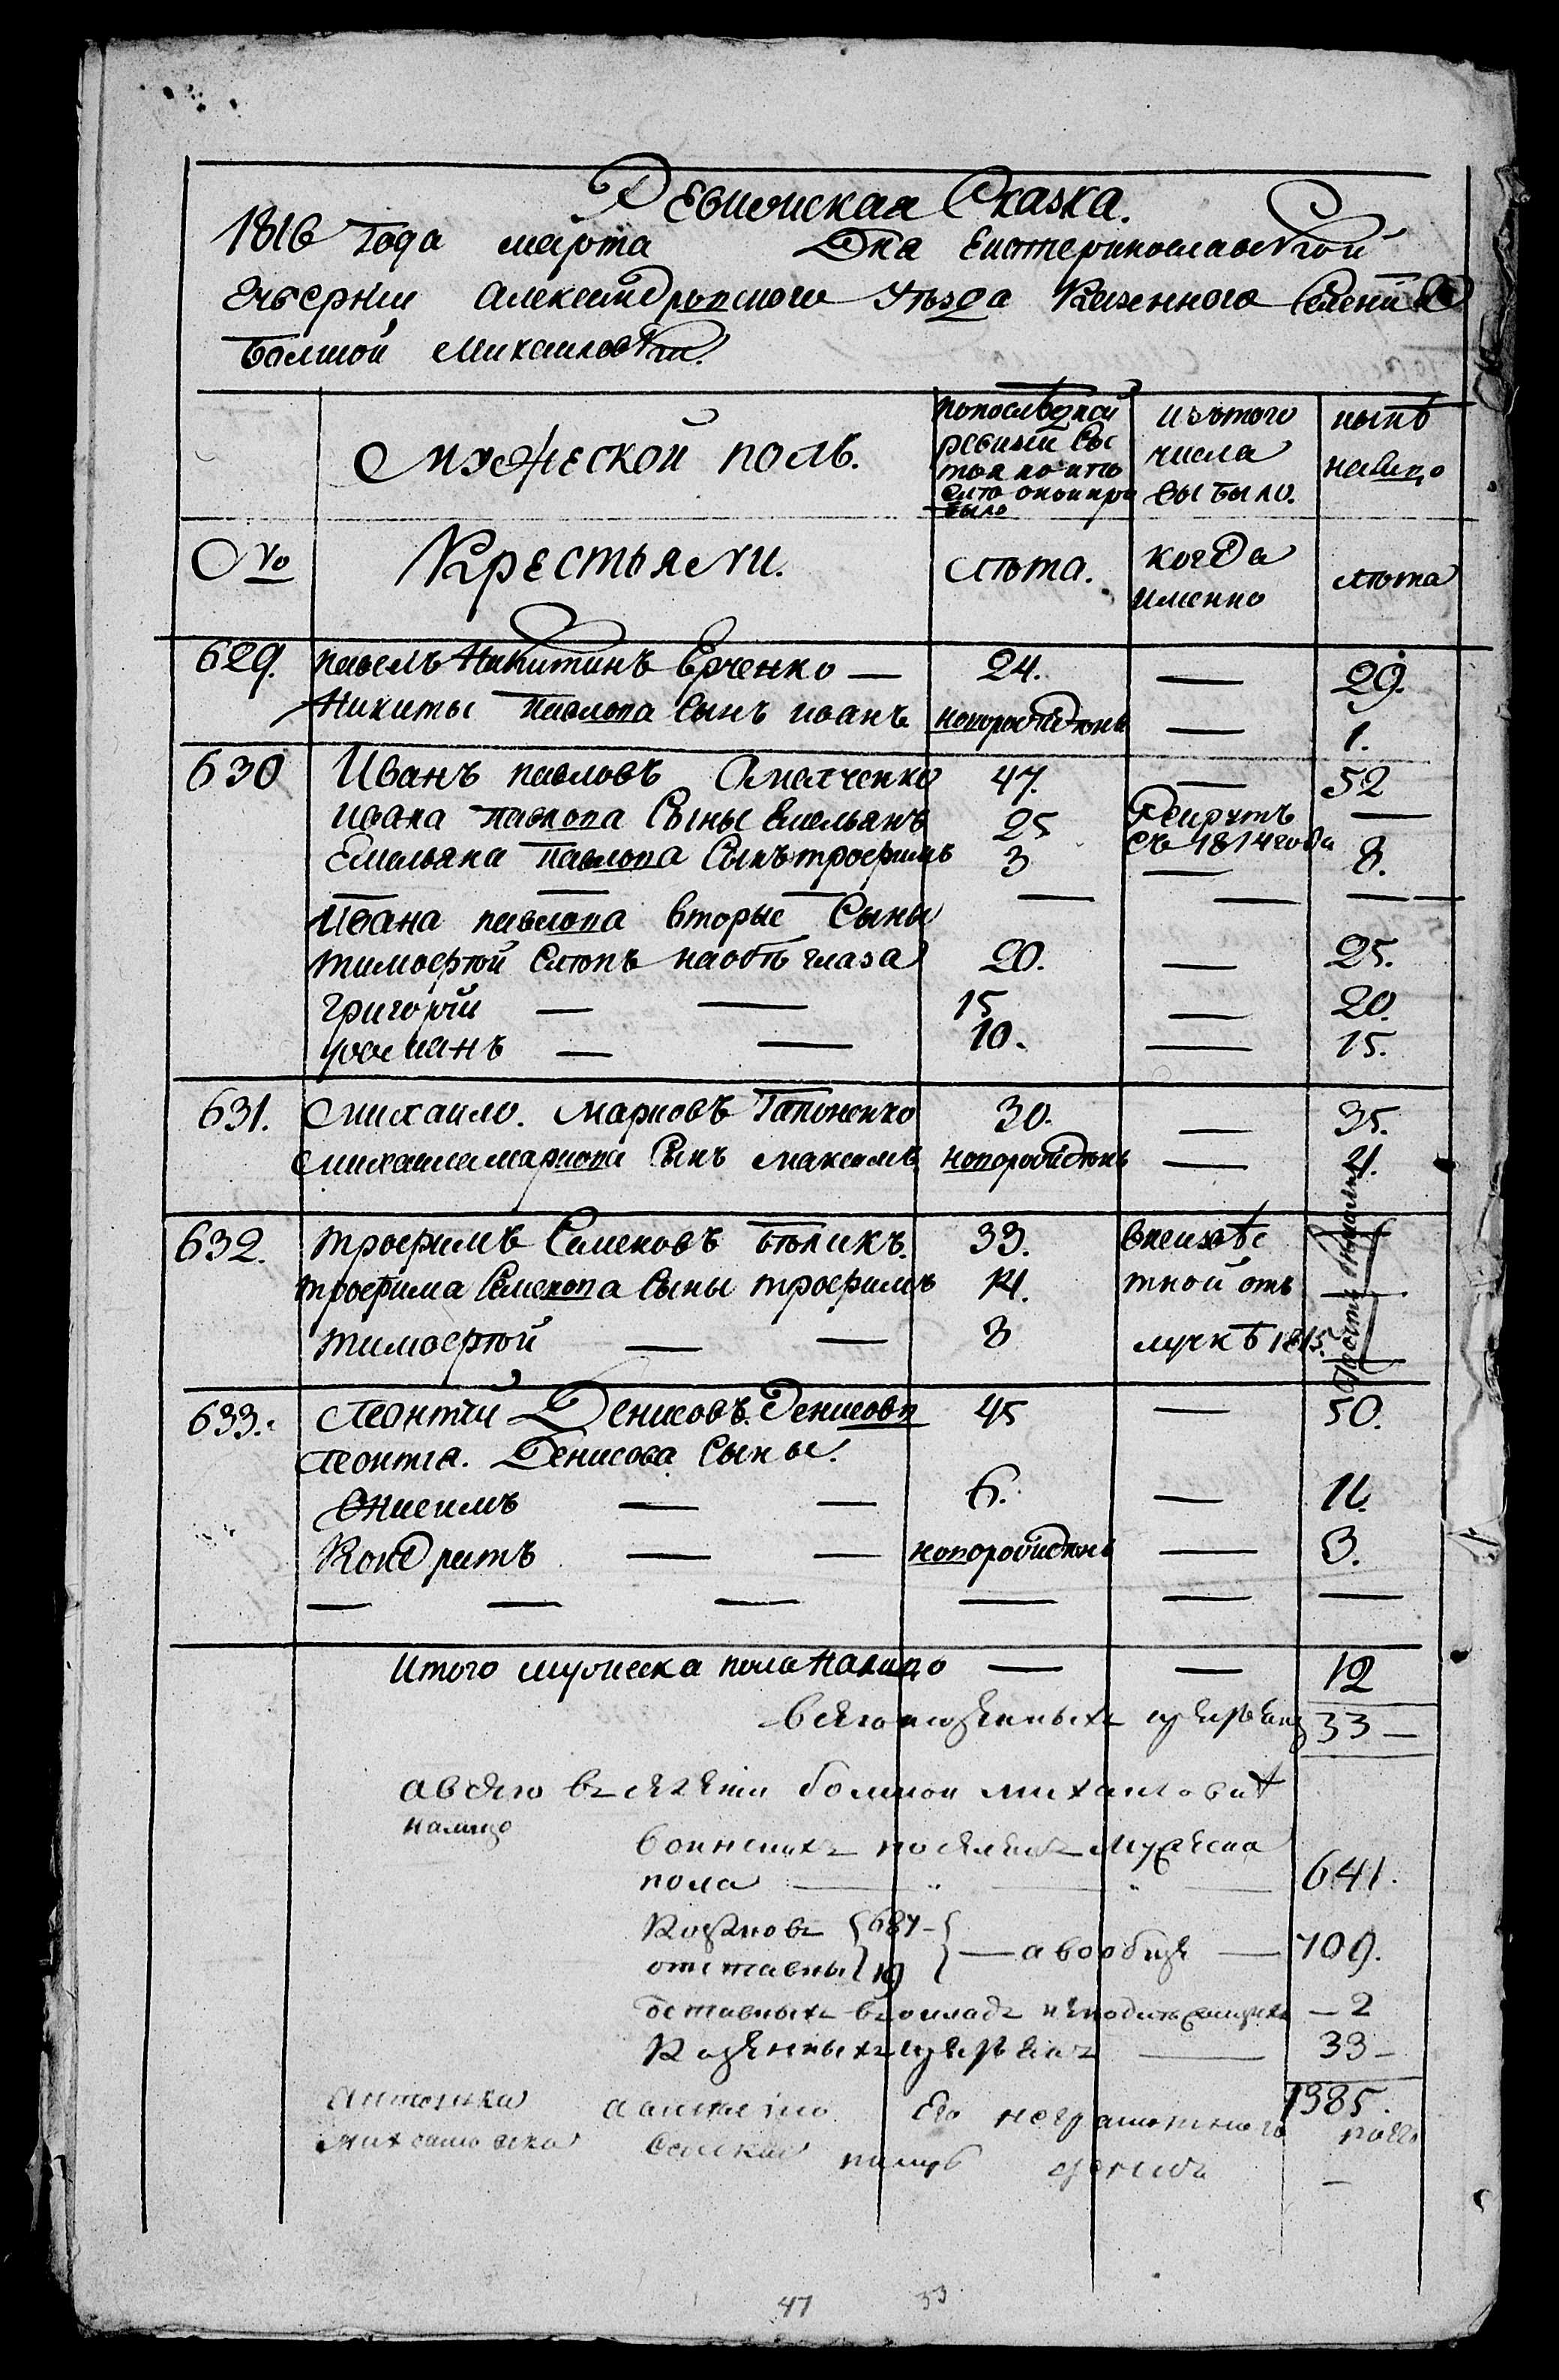 Ревижская Сказка.
1816 Года марта Дня Екатеринославской
Губернии Александровского Уѣзда Казенного Селения
Болшой Михаиловки.
Мужеской полъ.
По последней ревизии состояло и после оной прибыло
изъ того числа выбыло.
ныне налицо
№
Крестьяни.
Лѣта.
когда именно
лѣта
629. павелъ Никитинъ Ерченко — 24. — 29.
Никиты Павлова Сынъ иванъ новорожденъ — 1.
630 Иванъ павловъ Омелченко 47. — 52
Ивана павлова Сыны Емельянъ 25 Рекрутъ съ 1814 года —
Емельяна Павлова Сынъ трофимъ 3 — 8.
Ивана павлова вторые Сыны — — —
тимофѣй слѣпъ на обѣ глаза 20. — 25.
григорѣй — — 15 — 20.
романъ — — 10. — 15.
631. михаило. марковъ Гапоненко 30. — 35.
михаила маркова Сынъ максимъ новорожденъ — 4.
632. трофимъ Семеновъ Бѣликъ. 33. внеизвѣс
трофима Семенова Сыны трофимъ 14. тной отъ —
тимофѣй — — 8 лучкѣ 1815. —
633. Леонтѣй Денисовъ. Денисовъ 45 — 50.
Леонтія. Денисова Сыны.
Онисимъ — — 6. — 11.
Кондратъ — — новорожденъ — 3.
— — — — — —
Итого мужеска пола Налицо — — 12
всего казенныхъ 33 —
а всего в селении болшой михаиловки
налицо
воинскихъ поселенъ мужеска
пола — " — " — 641.
Козаковъ {687 —
отставных {19 } — а вообще — 709.
— 2
Казенныхъ — 33 —
1385.
его неграмотного